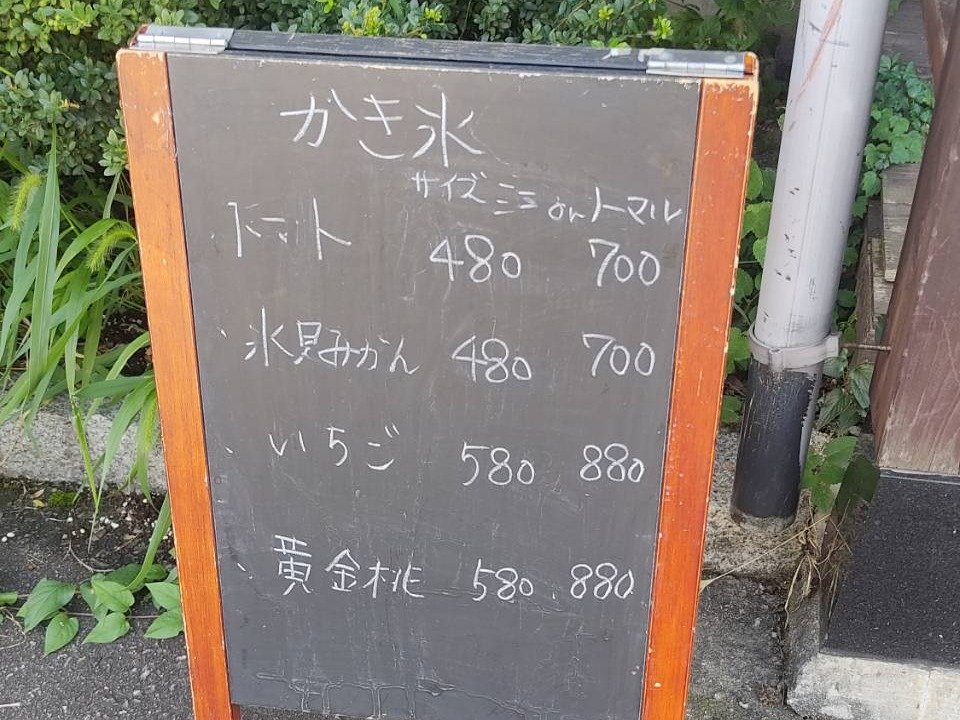 かき氷
サイズ ミニ or ノーマル
・トマト 480 700
・氷見みかん 480 700
・いちご 580 880
・黄金桃 580 880